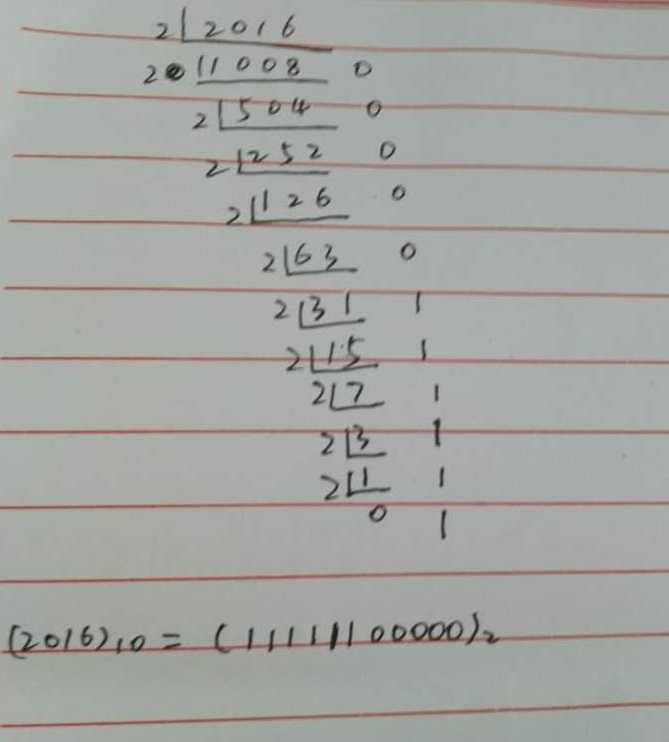 2 2016
2 1008 0
2 504 0
2 252 0
2 126 0
2 63 0
2 31 1
2 15 1
2 7 1
2 3 1
2 1 1
0 1
(2016)10 = (11111100000)2